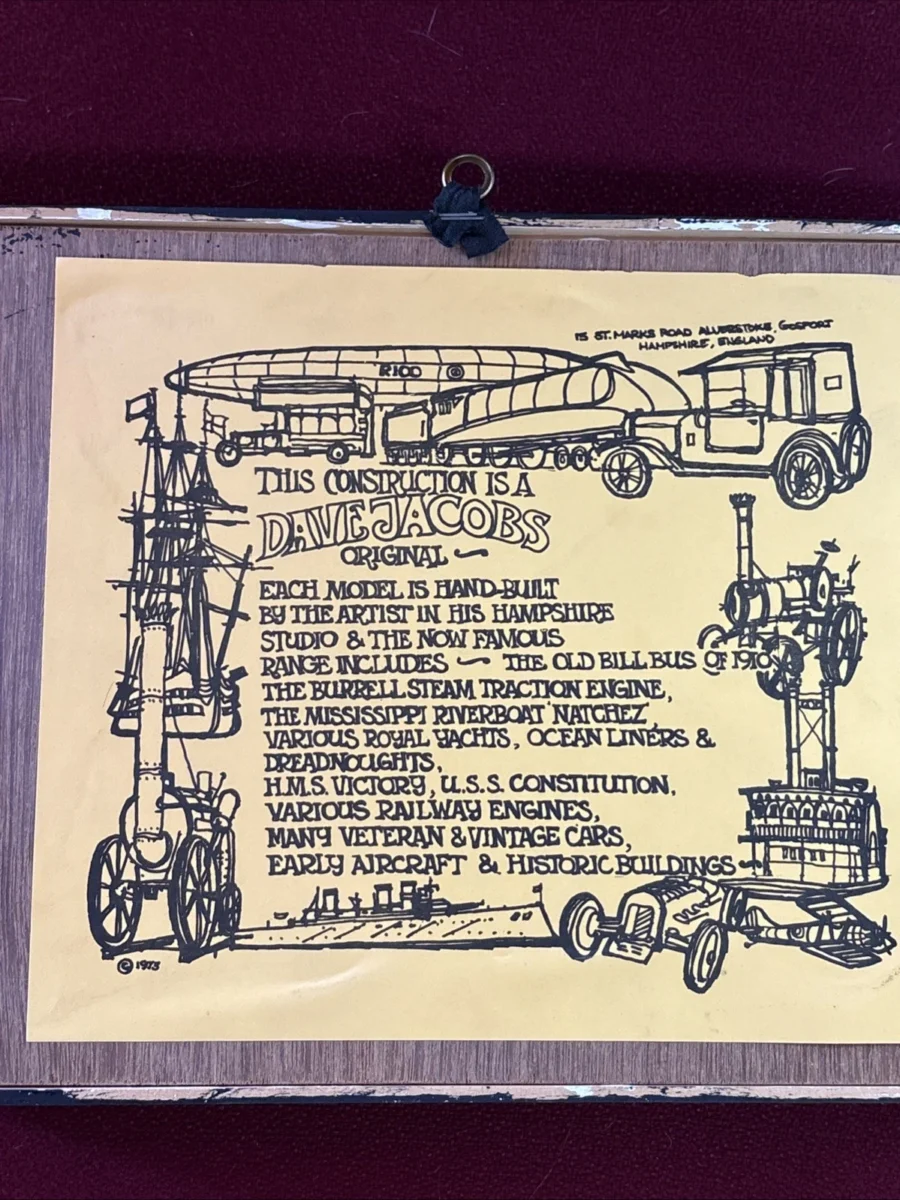 15 ST. MARKS ROAD ALVERSTOKE, GOSPORT
HAMPSHIRE, ENGLAND
R100
THIS CONSTRUCTION IS A
DAVE JACOBS
ORIGINAL ~
EACH MODEL IS HAND-BUILT
BY THE ARTIST IN HIS HAMPSHIRE
STUDIO & THE NOW FAMOUS
RANGE INCLUDES ~ THE OLD BILL BUS OF 1910,
THE BURRELL STEAM TRACTION ENGINE,
THE MISSISSIPPI RIVERBOAT 'NATCHEZ',
VARIOUS ROYAL YACHTS, OCEAN LINERS &
DREADNOUGHTS,
H.M.S. VICTORY, U.S.S. CONSTITUTION,
VARIOUS RAILWAY ENGINES,
MANY VETERAN & VINTAGE CARS,
EARLY AIRCRAFT & HISTORIC BUILDINGS ~
© 1973